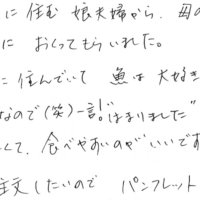 に住む 娘夫婦から、母の
に おくってもらいました。
に住んでいて 魚は大好き
なので(笑)一言!"はまりました"
くて、食べやすいのがいいです
注文したいので パンフレット